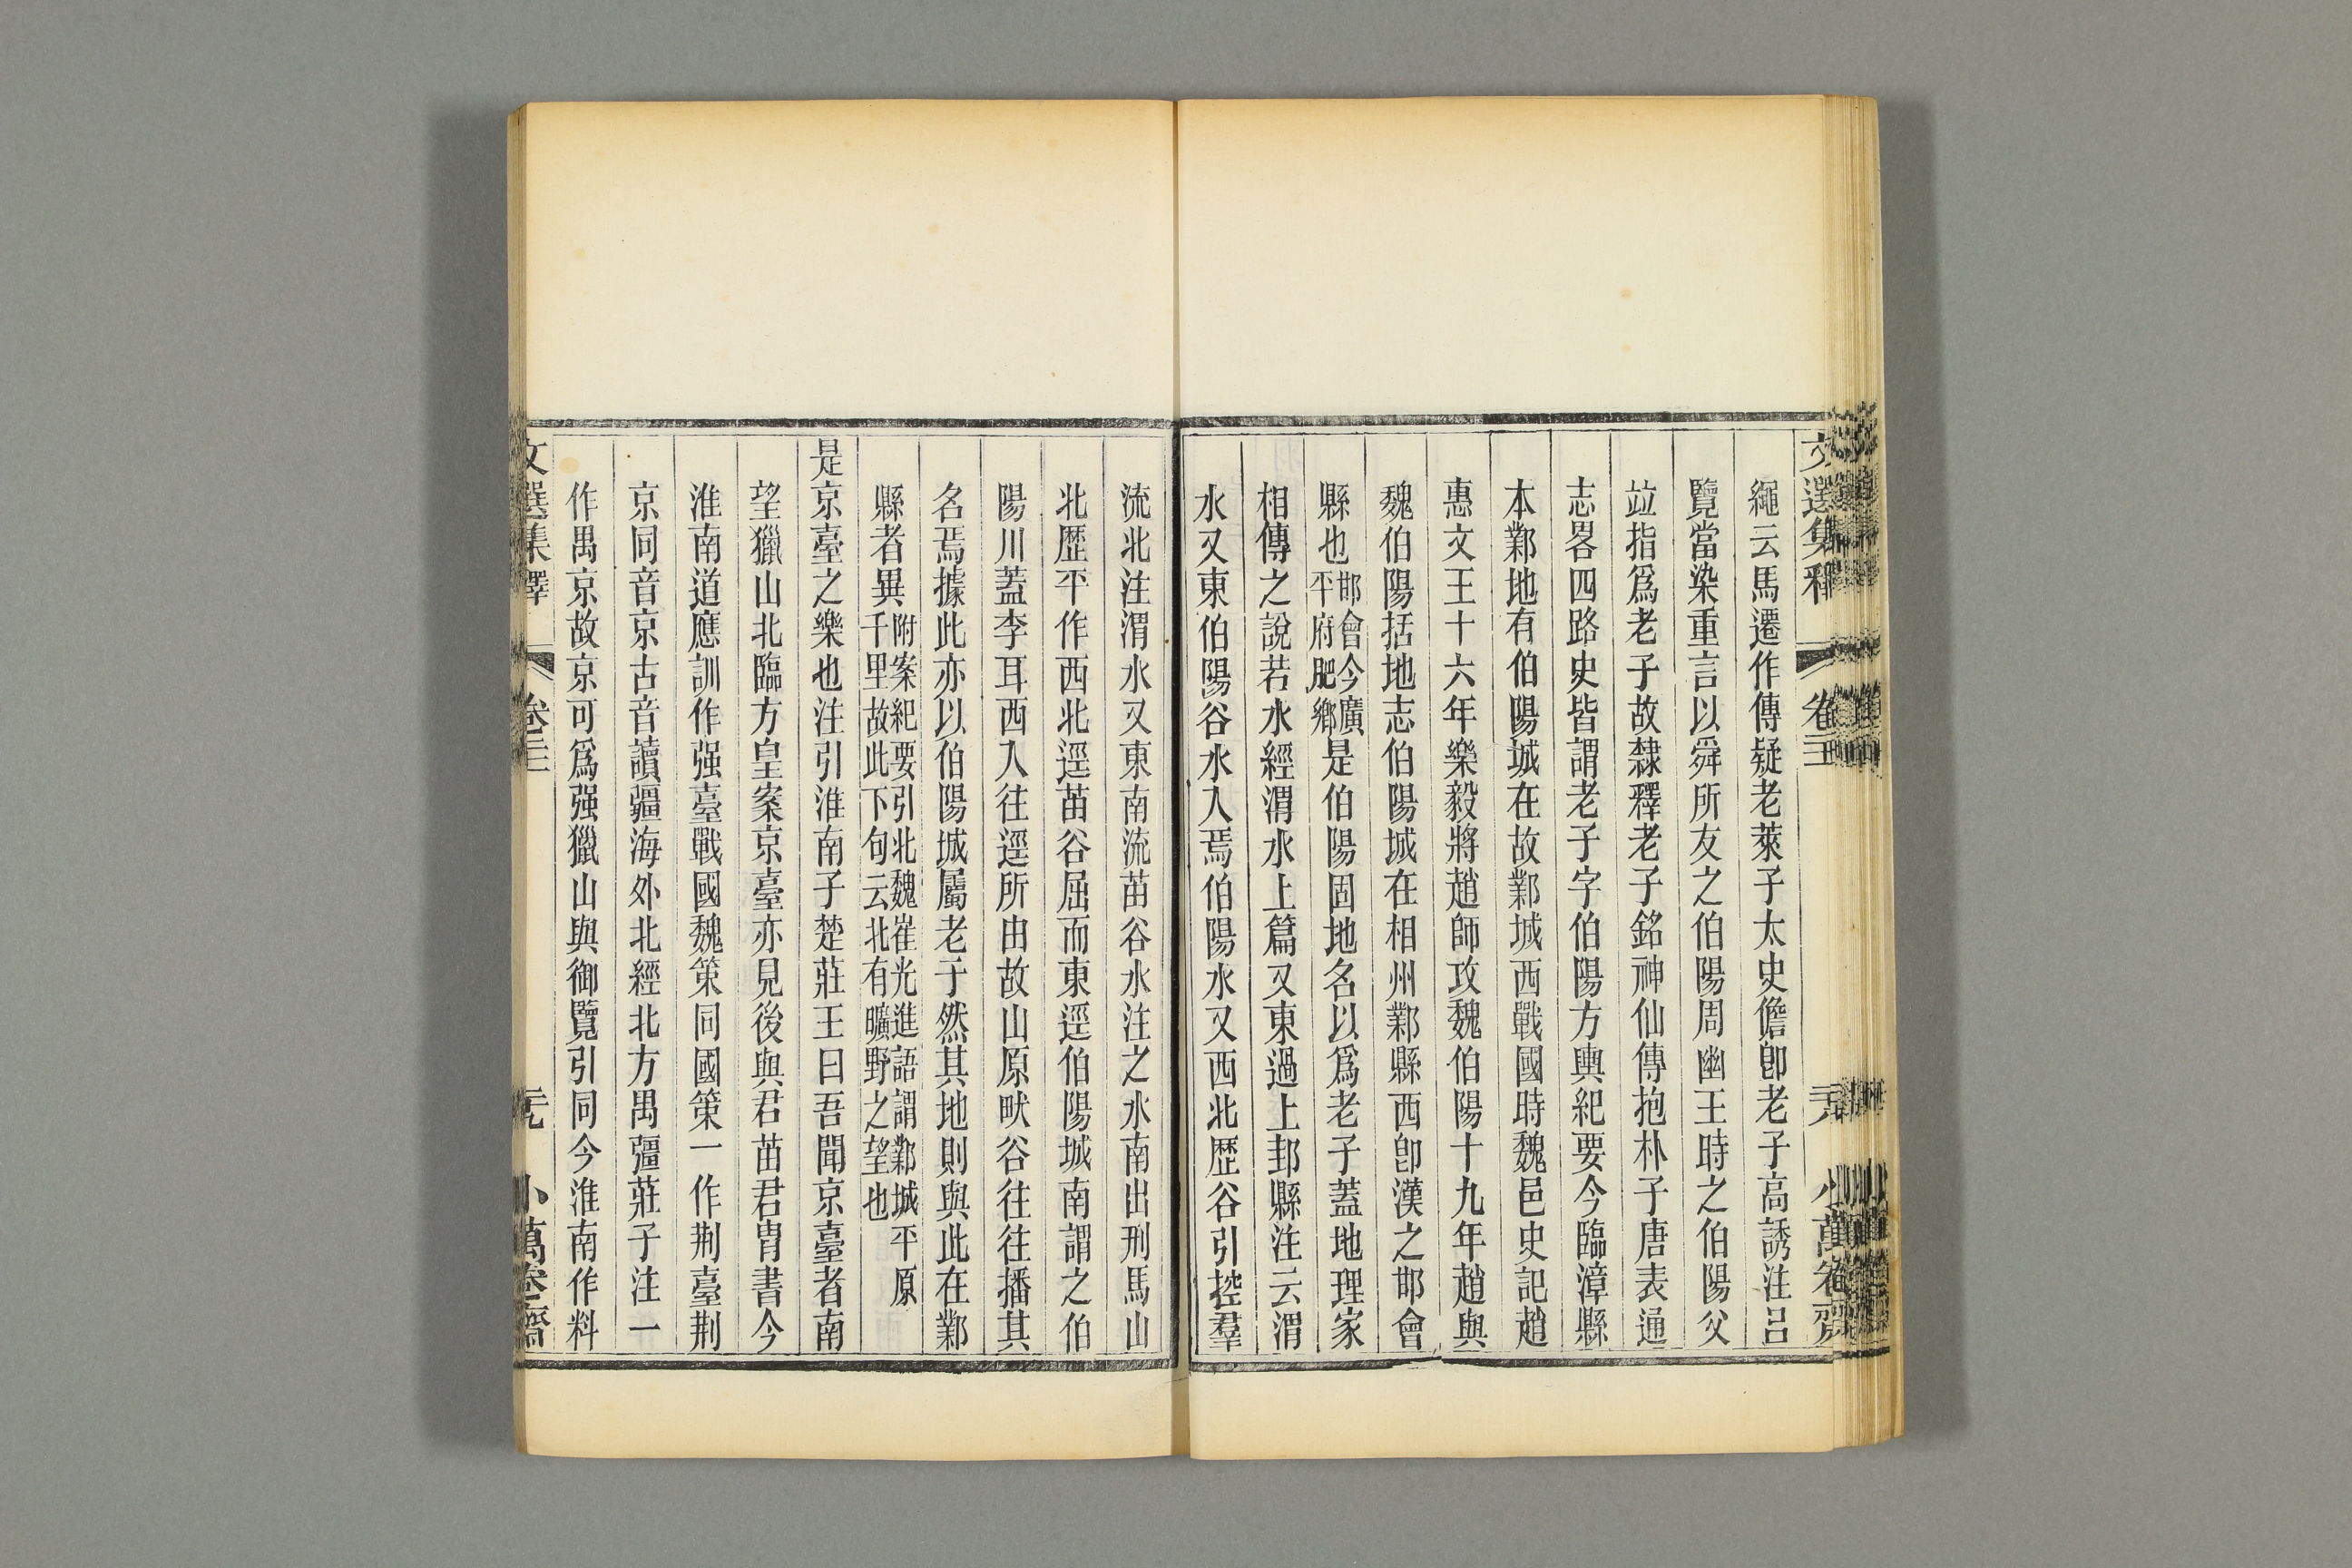 繩云馬遷作傳疑老萊子太史儋卽老子高誘注呂
覽當染重言以舜所友之伯陽周幽王時之伯陽父
竝指爲老子故隸釋老子銘神仙傳抱朴子唐表通
志畧四路史皆謂老子字伯陽方輿紀要今臨漳縣
本鄴地有伯陽城在故鄴城西戰國時魏邑史記趙
惠文王十六年樂毅將趙師攻魏伯陽十九年趙與
魏伯陽括地志伯陽城在相州鄴縣西卽漢之邯會
縣也邯會今廣平府肥鄉是伯陽固地名以爲老子蓋地理家
相傳之說若水經渭水上篇又東過上邽縣注云渭
水又東伯陽谷水入焉伯陽水又西北歷谷引控羣
流北注渭水又東南流苗谷水注之水南出刑馬山
北歷平作西北逕苗谷屈而東逕伯陽城南謂之伯
陽川蓋李耳西入往逕所由故山原畎谷往往播其
名焉據此亦以伯陽城屬老子然其地則與此在鄴
縣者異附案紀要引北魏崔光進語謂鄴城平原千里故此下句云北有曠野之望也
是京臺之樂也注引淮南子楚莊王曰吾聞京臺者南
望獵山北臨方皇案京臺亦見後與君苗君胄書今
淮南道應訓作强臺戰國魏策同國策一作荆臺荆
京同音京古音讀疆海外北經北方禺彊莊子注一
作禺京故京可爲强獵山與御覽引同今淮南作料
文選集釋
小萬卷齋